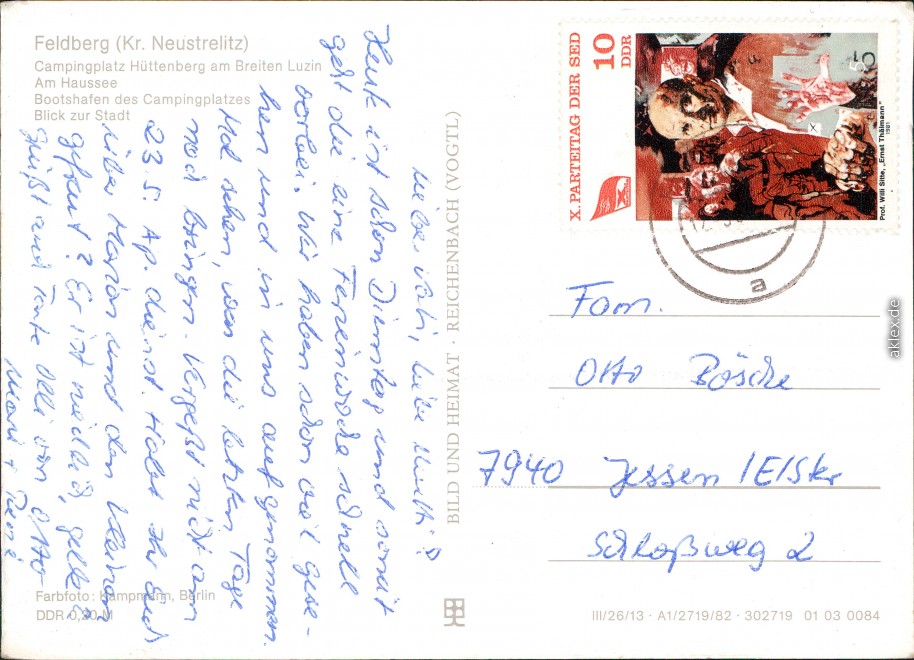 Feldberg (Kr. Neustrelitz)
Campingplatz Hüttenberg am Breiten Luzin
Am Haussee
Bootshafen des Campingplatzes
Blick zur Stadt
Liebe Vati, liebe Mutti!
Heute ist schon Dienstag und somit
geht die eine Ferienwoche schnell
vorbei. Wir haben schon viel gese-
hen und in uns aufgenommen.
Mal sehen, was die letzten Tage
noch bringen. Vergeßt nicht am
23.5. Ap. dienst. Habt Ihr Euch
über Marion und den kleinen
gefreut? Er ist niedlich, gell
Grüßt auch Tante Olli von Otto
Farbfoto: Kampmann, Berlin
DDR 0,20 M
BILD UND HEIMAT · REICHENBACH (VOGTL)
X. PARTEITAG DER SED
10
DDR
Prof. Willi Sitte, „Ernst Thälmann"
1981
a
Fam.
Otto Bösche
7940 Jessen/Elster
Schloßweg 2
III/26/13 · A1/2719/82 · 302719 01 03 0084
aklex.de